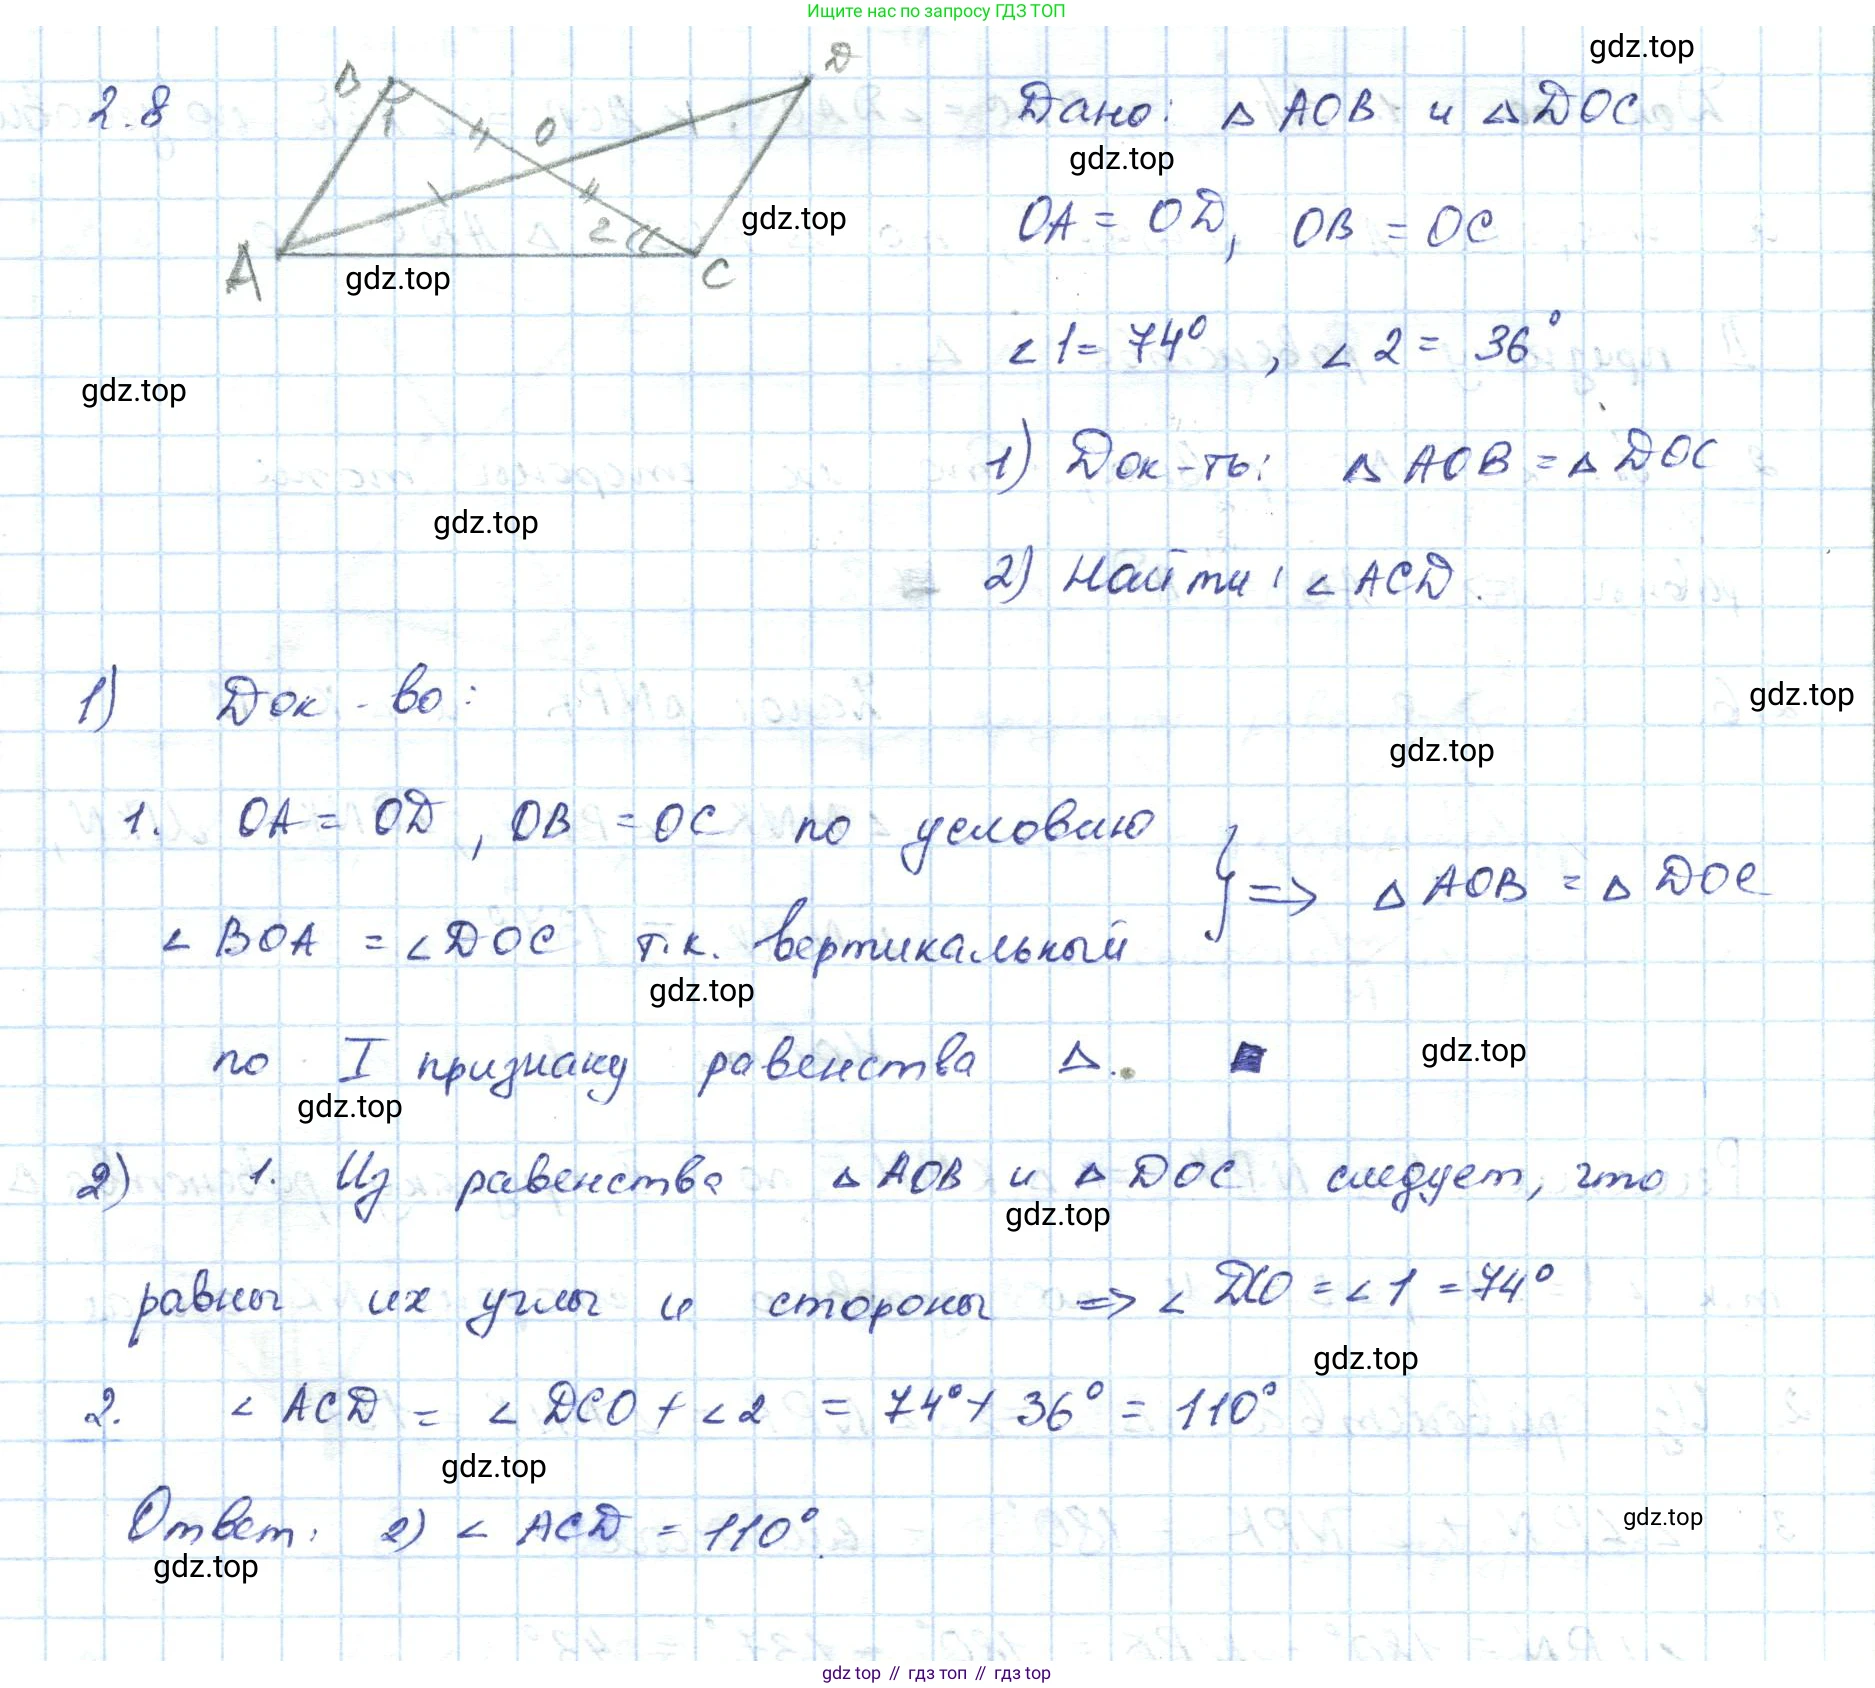 Ищите нас по запросу ГДЗ ТОП
gdz.top
2.8
B
D
1
O
2
A
C
Дано: △ AOB и △ DOC
gdz.top
gdz.top
gdz.top
OA = OD, OB = OC
∠1 = 74°, ∠2 = 36°
gdz.top
1) Док-ть: △ AOB = △ DOC
gdz.top
2) Найти: ∠ ACD.
1) Док-во:
gdz.top
gdz.top
1. OA = OD, OB = OC по условию
} => △ AOB = △ DOC
∠ BOA = ∠ DOC т.к. вертикальный
gdz.top
по I признаку равенства △.
gdz.top
gdz.top
2) 1. Из равенства △ AOB и △ DOC следует, что
gdz.top
равны их углы и стороны => ∠ DCO = ∠1 = 74°
gdz.top
2. ∠ ACD = ∠ DCO + ∠2 = 74° + 36° = 110°
gdz.top
Ответ: 2) ∠ ACD = 110°.
gdz.top
gdz.top
gdz top // гдз топ // гдз top